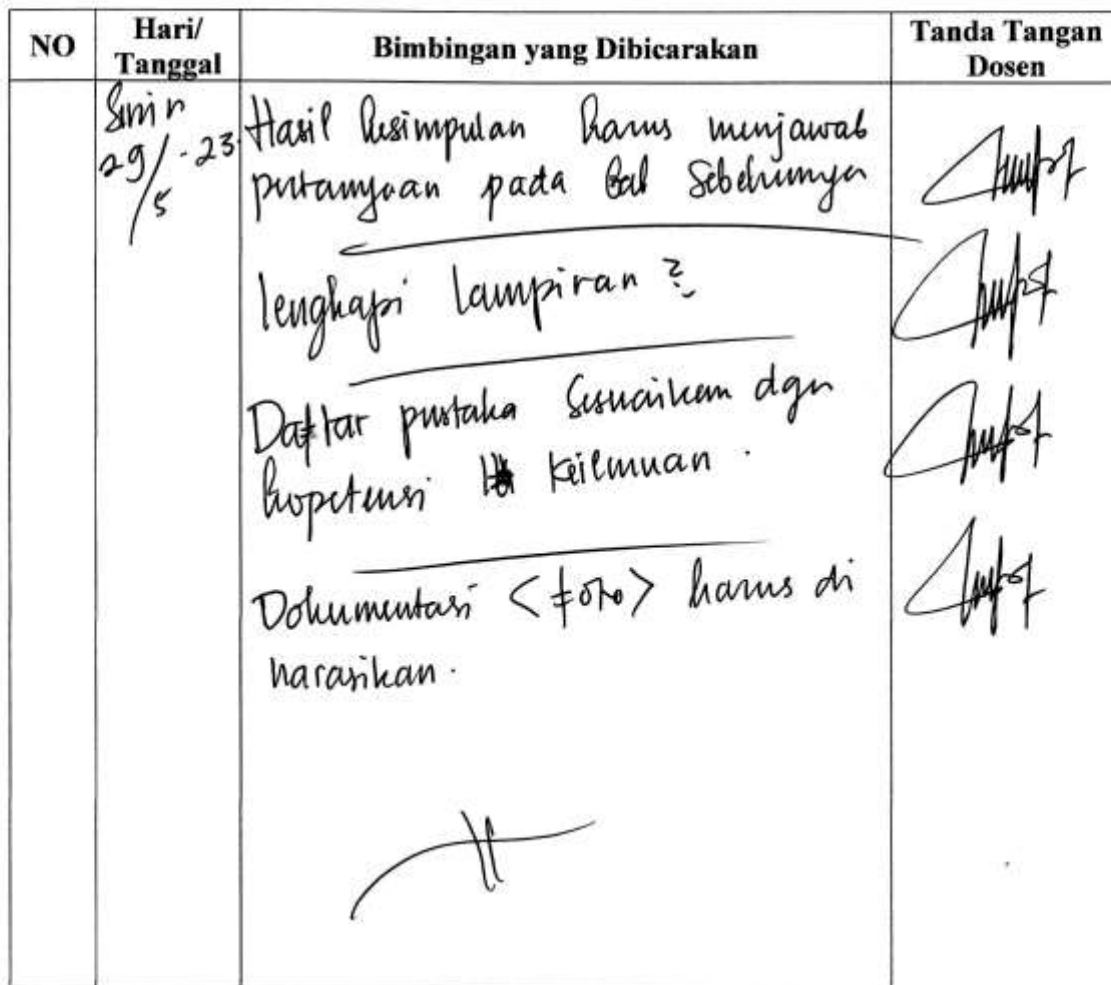 NO Hari/ Bimbingan yang Dibicarakan Tanda Tangan
Tanggal Dosen
Senin
29/5-23
Hasil kesimpulan harus menjawab
pertanyaan pada bab sebelumnya
lengkapi lampiran ?
Daftar pustaka sesuaikan dgn
kopetensi keilmuan .
Dokumentasi <foto> harus di
narasikan .